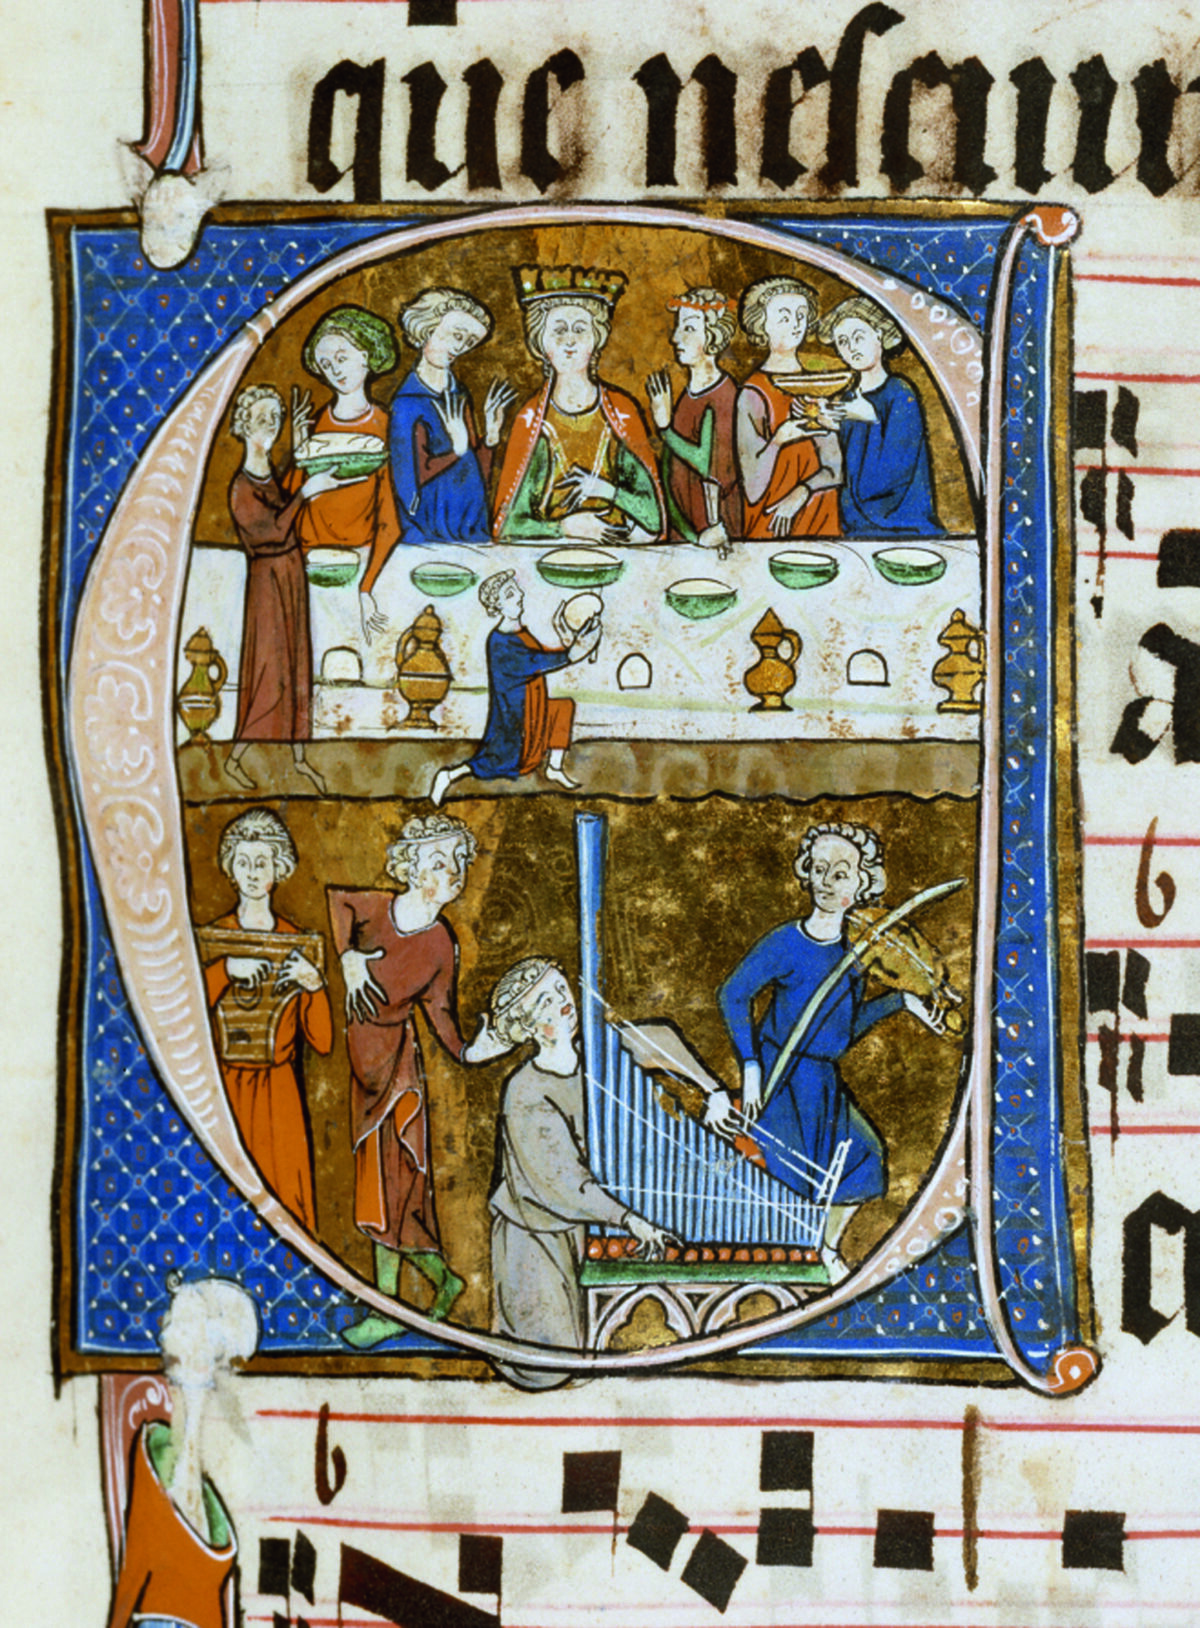 que nesciun
b
a
b